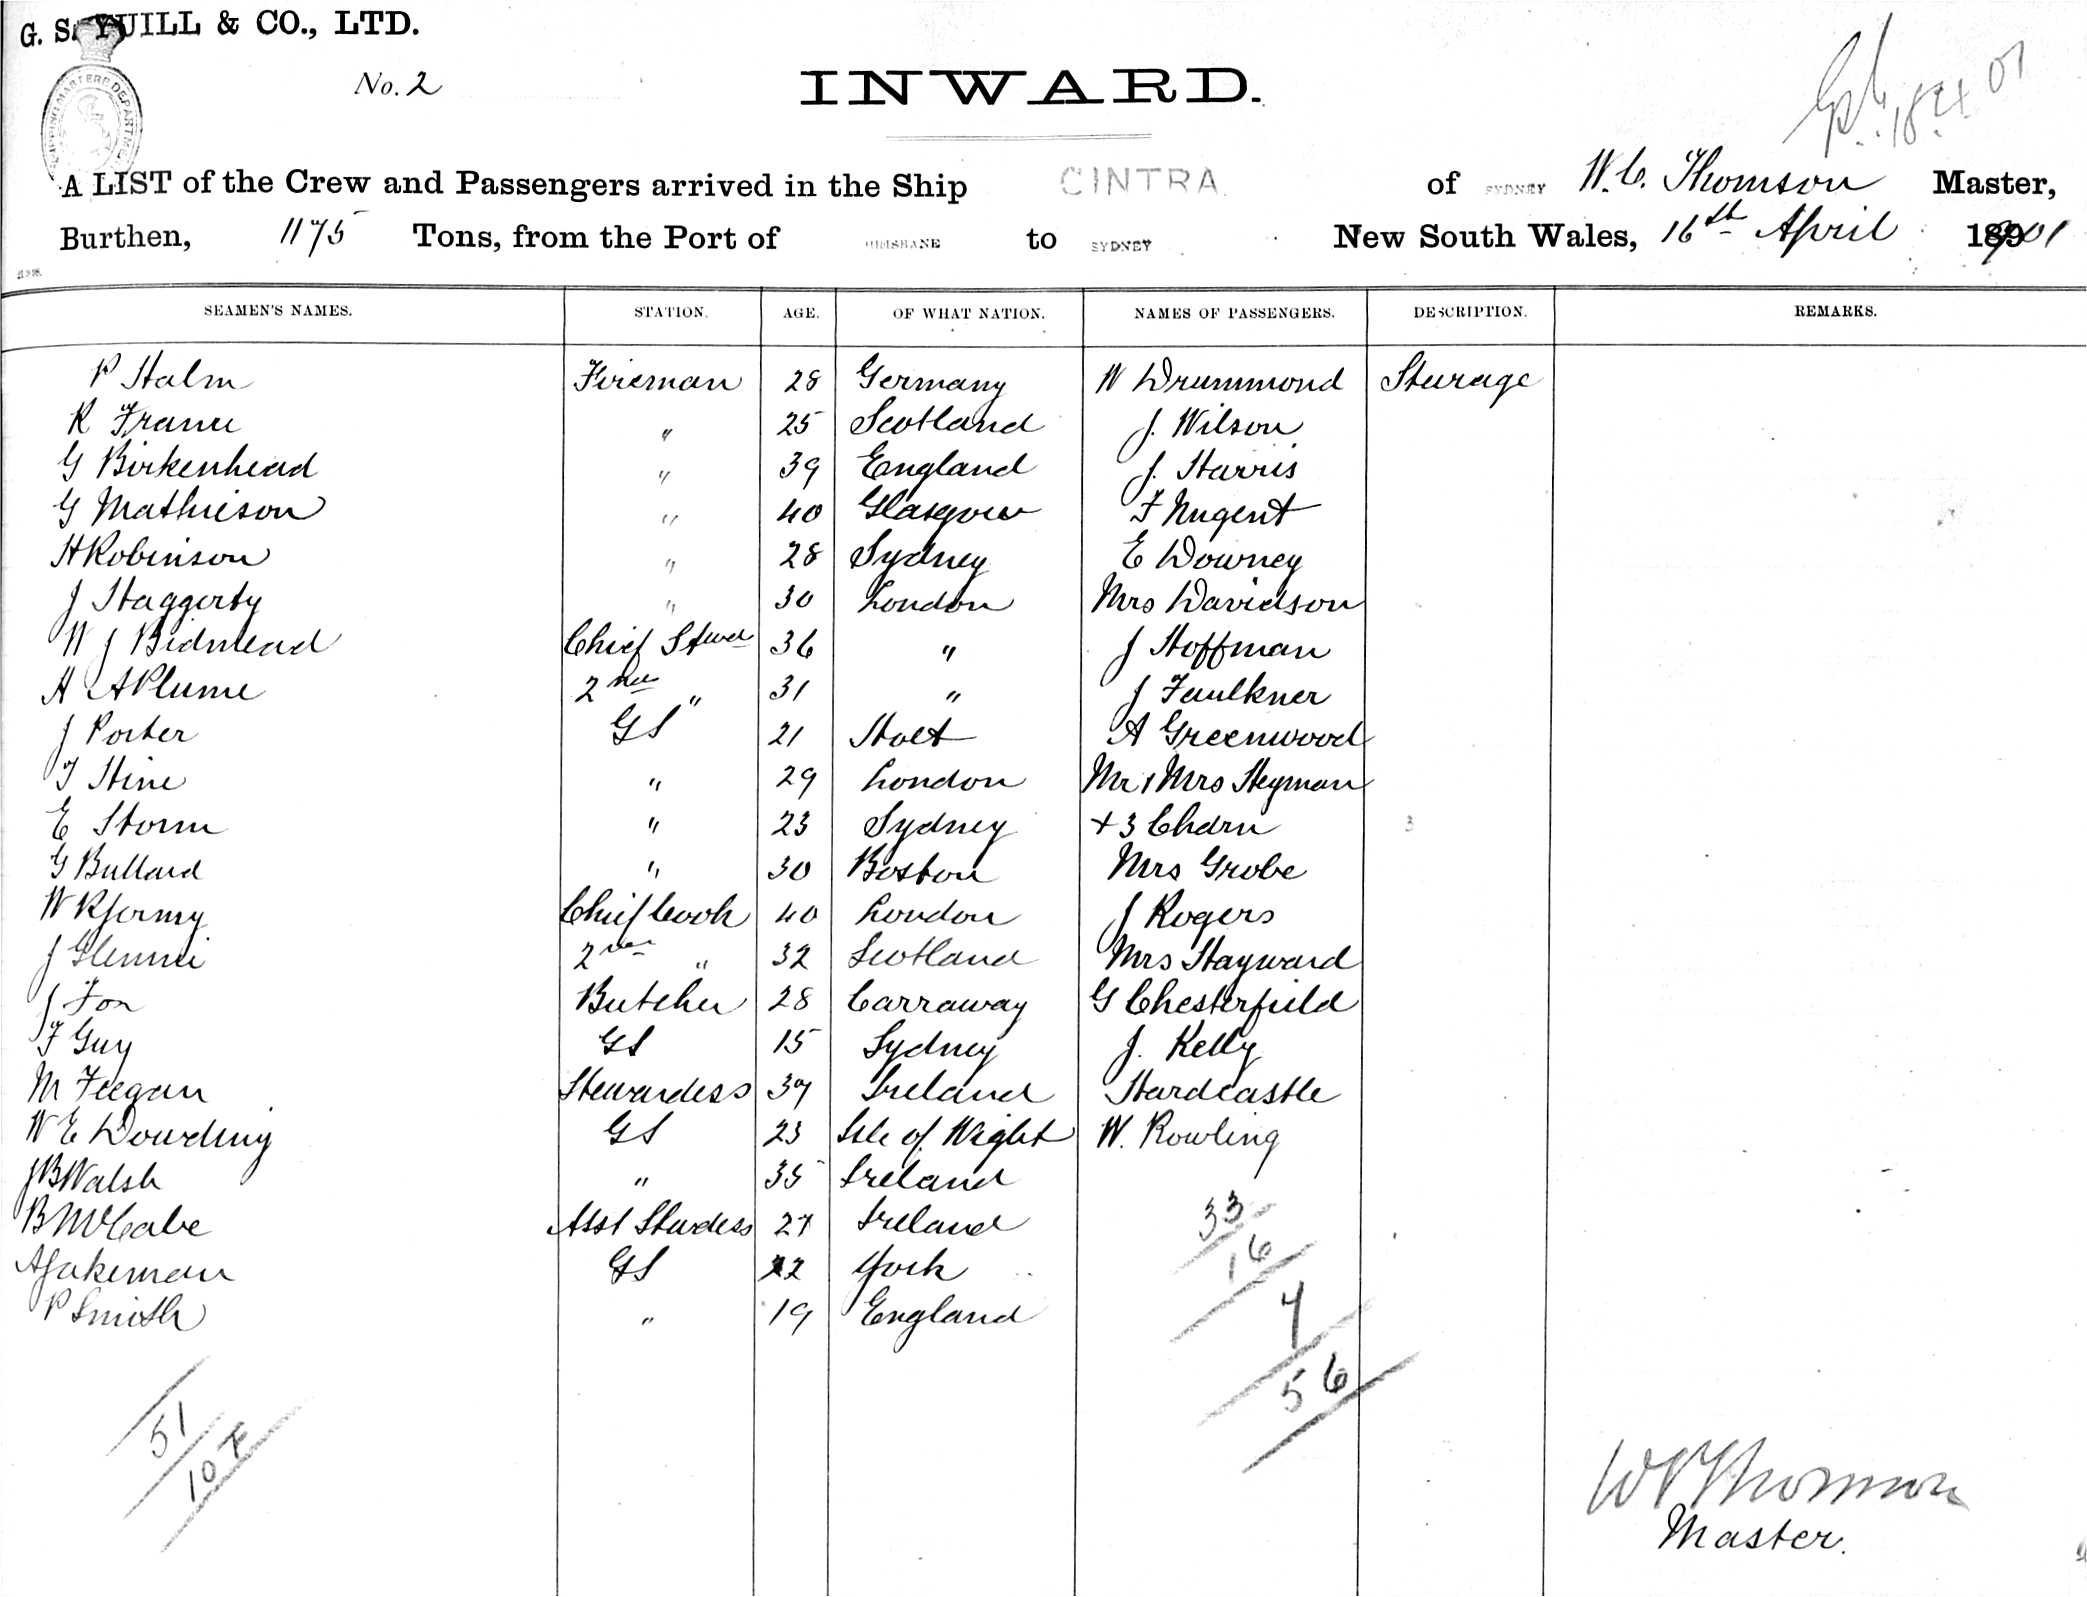 G. S. YUILL & CO., LTD.
No. 2
INWARD.
18 4 01
A LIST of the Crew and Passengers arrived in the Ship CINTRA of SYDNEY W. C. Thomson Master,
Burthen, 1175 Tons, from the Port of BRISBANE to SYDNEY New South Wales, 16th April 1901
SEAMEN'S NAMES. STATION. AGE. OF WHAT NATION. NAMES OF PASSENGERS. DESCRIPTION. REMARKS.
P Halm Fireman 28 Germany W Drummond Steerage
R France " 25 Scotland J. Wilson
G Birkenhead " 39 England J. Harris
G Mathieson " 40 Glasgow F Nugent
H Robinson " 28 Sydney E Downey
J Haggerty " 30 London Mrs Davidson
W J Bidmead Chief Stwd 36 " J Hoffman
A A Plume 2nd " 31 " J Faulkner
J Porter GS 21 Holt A Greenwood
T Hine " 29 London Mr & Mrs Heyman
E Storm " 23 Sydney + 3 Chdrn 3
G Bullard " 30 Boston Mrs Grobe
W R Jermy Chief Cook 40 London J Rogers
J Glennie 2nd " 32 Scotland Mrs Hayward
J Fox Butcher 28 Carraway G Chesterfield
F Guy GS 15 Sydney J. Kelly
M Feegan Stewardess 39 Ireland Hardcastle
W E Dowding GS 23 Isle of Wight W. Rowling
J B Walsh " 35 Ireland
B McCabe Asst Stwdess 27 Ireland
A Jakeman GS 22 York
P Smith " 19 England
33
16
7
56
51
107
W C Thomson
Master.